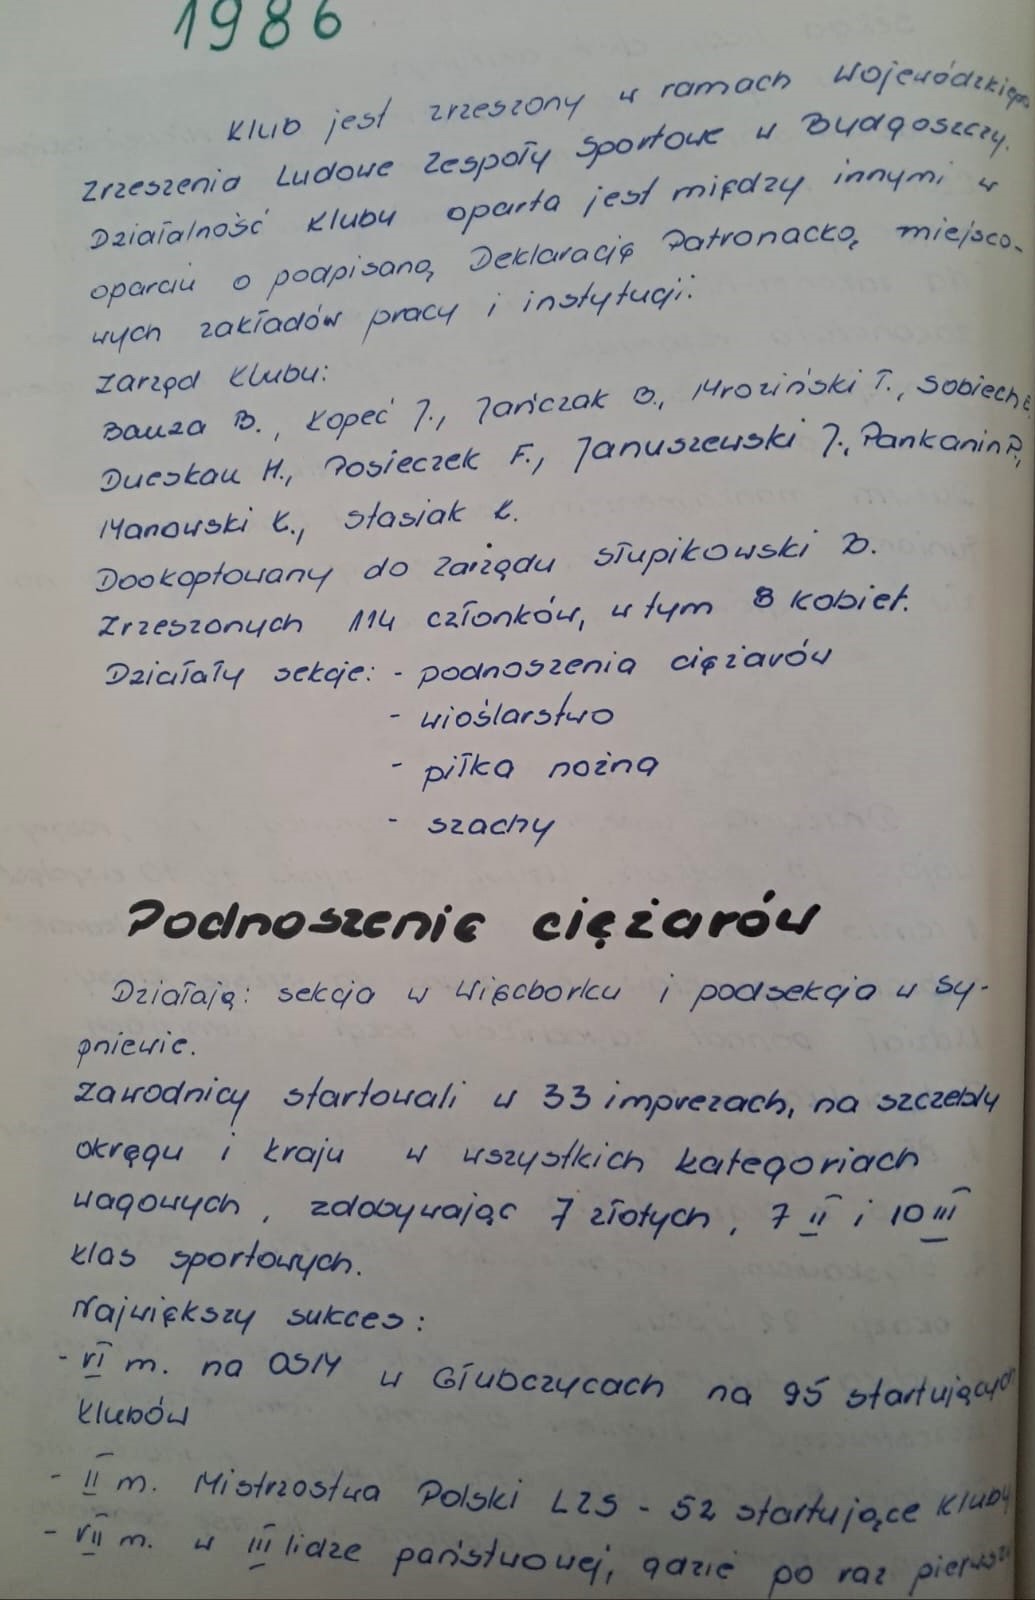 1986
Klub jest zrzeszony w ramach Wojewódzkiego
Zrzeszenia Ludowe Zespoły Sportowe w Bydgoszczy.
Działalność Klubu oparta jest między innymi w
oparciu o podpisaną Deklarację Patronacką miejsco-
wych zakładów pracy i instytucji.
Zarząd Klubu:
Bauza B., Kopeć J., Jańczak B., Mroziński T., Sobiech E.
Dueskau H., Posieczek F., Januszewski J., Pankanin P.,
Manowski Ł., Stasiak Ł.
Dookoptowany do Zarządu Słupikowski B.
Zrzeszonych 114 członków, w tym 8 kobiet.
Działały sekcje: - podnoszenia ciężarów
- wioślarstwo
- piłka nożna
- szachy
Podnoszenie ciężarów
Działają: sekcja w Więcborku i podsekcja w Sy-
pniewie.
Zawodnicy startowali w 33 imprezach, na szczeblu
okręgu i kraju w wszystkich kategoriach
wagowych, zdobywając 7 złotych, 7 II i 10 III
klas sportowych.
Największy sukces:
- VI m. na OSM w Głubczycach na 95 startujących
klubów
- II m. Mistrzostwa Polski LZS - 52 startujące kluby
- VII m. w III lidze państwowej, gdzie po raz pierwszy